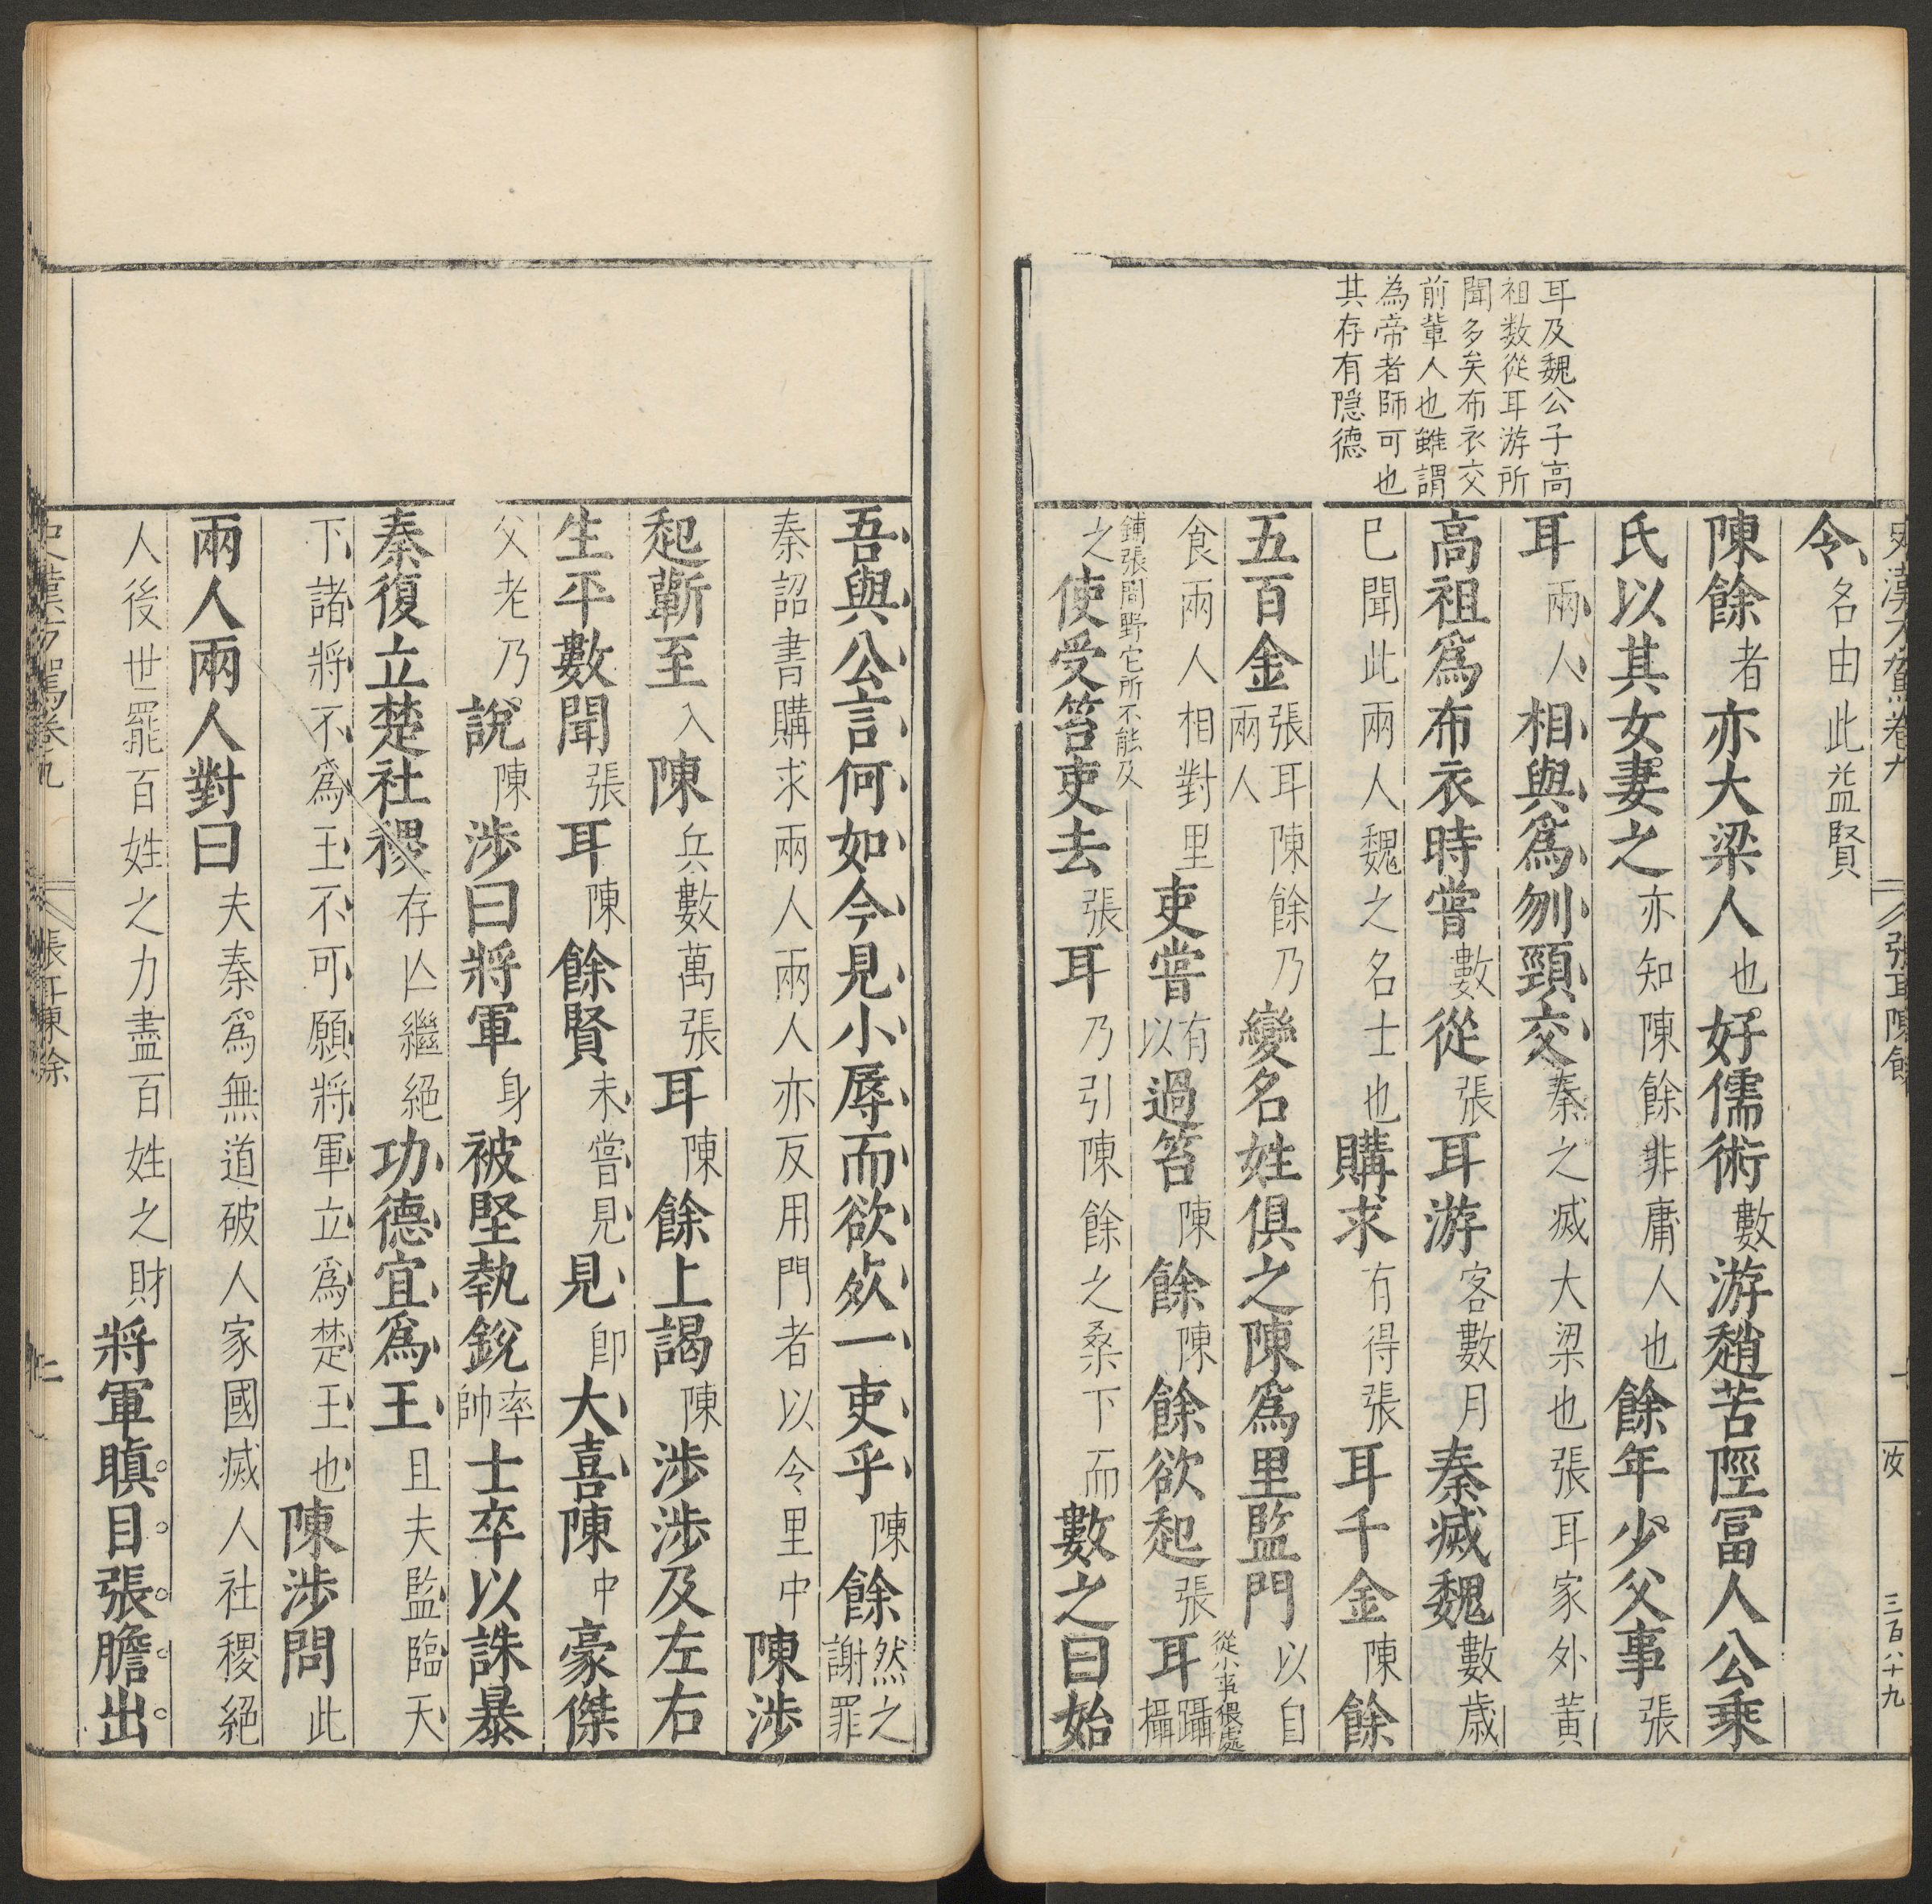 史漢方駕卷九 張耳陳餘 三百八十九
耳及魏公子高
祖数從耳游所
聞多矣布衣交
前輩人也雖謂
為帝者師可也
其存有隠德
令名由此益賢
陳餘者亦大梁人也好儒術數游趙苦陘冨人公乘
氏以其女妻之亦知陳餘非庸人也餘年少父事張
耳兩人相與爲刎頸交秦之㓕大梁也張耳家外黃
高祖爲布衣時嘗數從張耳游客數月秦㓕魏數歳
巳聞此兩人魏之名士也購求有得張耳千金陳餘
五百金張耳陳餘乃兩人變名姓俱之陳爲里監門以自
從小事猥處
食兩人相對里吏嘗有以過笞陳餘陳餘欲起張耳躡攝
鋪張間野它所不能及
之使受笞吏去張耳乃引陳餘之桑下而數之曰始
吾與公言何如今見小辱而欲𣦸一吏乎陳餘然之謝罪
秦詔書購求兩人兩人亦反用門者以令里中陳涉
起蘄至入陳兵數萬張耳陳餘上謁陳涉涉及左右
生平數聞張耳陳餘賢未嘗見見卽大喜陳中豪傑
父老乃說陳涉曰將軍身被堅執銳率帥士卒以誅暴
秦復立楚社稷存亾繼絕功德宜爲王且夫監臨天
下諸將不爲王不可願將軍立爲楚王也陳涉問此
兩人兩人對曰夫秦爲無道破人家國㓕人社稷絕
人後世罷百姓之力盡百姓之財將軍瞋目張膽出
史漢方駕卷九 張耳陳餘